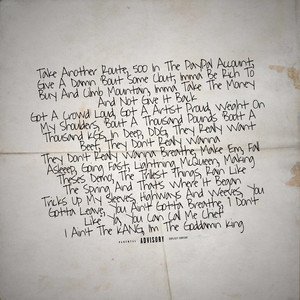 Take Another Route, 500 In The PayPal Account,
Give A Damn 'Bout Some Clout, Imma Be Rich To
Buy And Climb Mountain, Imma Take The Money
And Not Give It Back
Got A Crowd Loud, Got A Artist Proud, Weight On
My Shoulders, 'Bout A Thousand Pounds, Boot A
Thousand KGs, In Deep, DDG, They Really Want
Beef, They Don't Really Wanna
They Don't Really Wanna Breathe, Make Em, Fall
Asleep, Going Fast, Lightning McQueen, Making
Thises Demo, The Trilest Things, Ran Like
The Spring And That's Where It Began
Tricks Up My Sleeves, Highways And Weeves, You
Gotta Leave, You Ain't Gotta Breathe, I Don't
Like Ya, You Can Call Me Chef
I Ain't The KANG, I'm The Goddamn King
PARENTAL ADVISORY EXPLICIT CONTENT